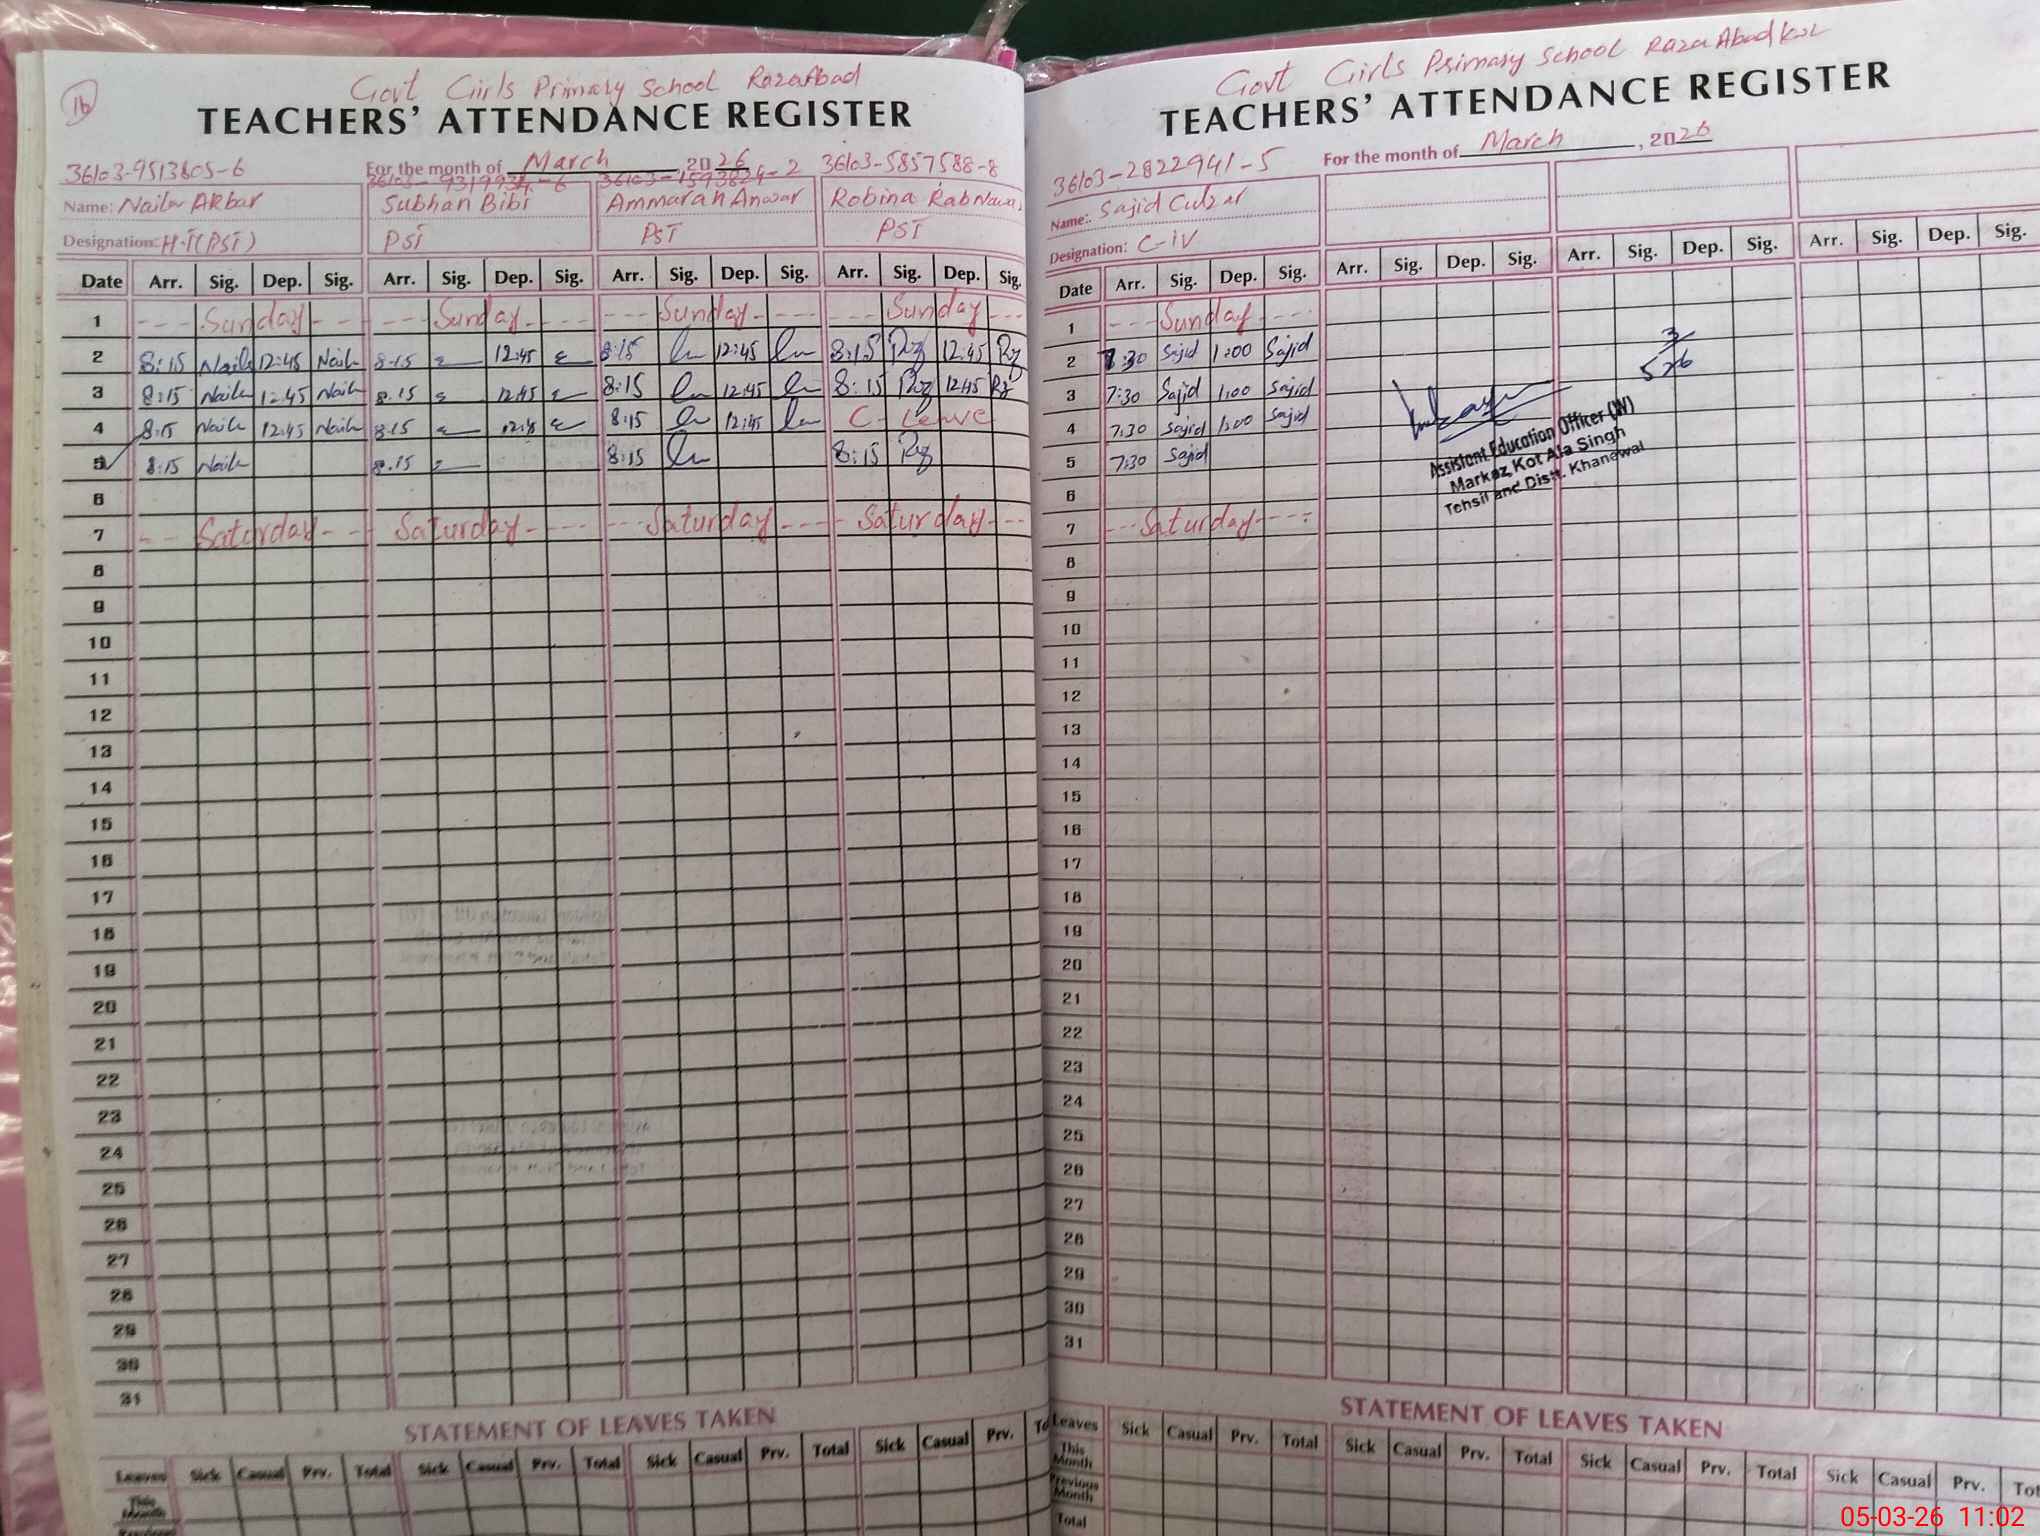 16
Govt Girls Primary School RazaAbad
TEACHERS' ATTENDANCE REGISTER
36103-9513805-6 For the month of March 2026 36103-5857588-8
36103-1593824-2
Name: Naila Akbar Subhan Bibi Ammarah Anwar Robina Rab Nawaz
Designation: H-T(PST) PST PST PST
Date Arr. Sig. Dep. Sig. Arr. Sig. Dep. Sig. Arr. Sig. Dep. Sig. Arr. Sig. Dep. Sig.
1 --- Sunday -- --- Sunday ---- --- Sunday --- --- Sunday ---
2 8:15 Naila 12:45 Naila 8:15 12:45 8:15 12:45 8:15 12:45
3 8:15 Naila 12:45 Naila 8:15 12:45 8:15 12:45 8:15 12:45
4 8:15 Naila 12:45 Naila 8:15 12:45 8:15 12:45 C- Leave
5 8:15 Naila 8:15 8:15 8:15
6
7 -- Saturday -- - Saturday ---- --- Saturday --- - Saturday ---
8
9
10
11
12
13
14
15
16
17
18
19
20
21
22
23
24
25
26
27
28
29
30
31
STATEMENT OF LEAVES TAKEN
Leaves Sick Casual Prv. Total Sick Casual Prv. Total Sick Casual Prv. Total Sick Casual Prv.
This Month
Previous
Govt Girls Primary School Raza Abad
TEACHERS' ATTENDANCE REGISTER
36103-2822941-5 For the month of March, 2026
Name: Sajid
Designation: C-IV
Date Arr. Sig. Dep. Sig. Arr. Sig. Dep. Sig. Arr. Sig. Dep. Sig. Arr. Sig. Dep. Sig.
1 --- Sunday ---
2 7:30 Sajid 1:00 Sajid
3 7:30 Sajid 1:00 Sajid
4 7:30 Sajid 1:00 Sajid
5 7:30 Sajid
6
7 --- Saturday ---
8
9
10
11
12
13
14
15
16
17
18
19
20
21
22
23
24
25
26
27
28
29
30
31
Assistant Education Officer (W)
Markaz Kot Ala Singh
Tehsil and Distt. Khanewal
STATEMENT OF LEAVES TAKEN
Leaves Sick Casual Prv. Total Sick Casual Prv. Total Sick Casual Prv. Total Sick Casual Prv.
This Month
Previous Month
Total
05-03-26 11:02